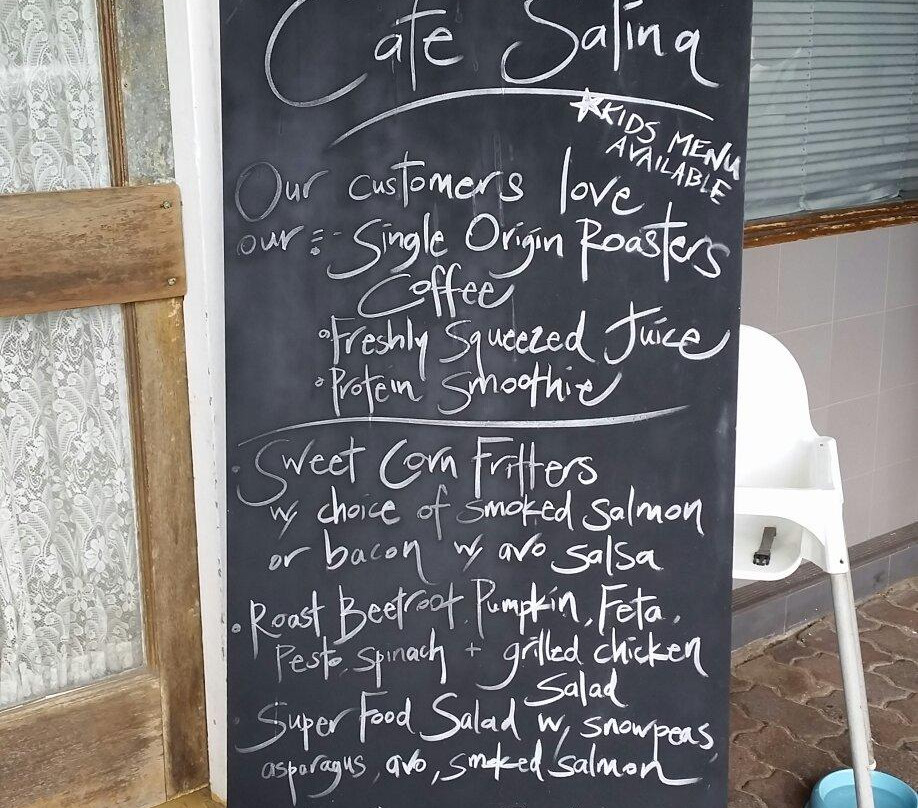 Cafe Salina
★KIDS MENU
AVAILABLE
Our customers love
our :- Single Origin Roasters
Coffee
• Freshly Squeezed Juice
• Protein Smoothie
• Sweet Corn Fritters
w/ choice of smoked salmon
or bacon w/ avo salsa
• Roast Beetroot, Pumpkin, Feta,
Pesto, spinach + grilled chicken
Salad
• Super Food Salad w/ snowpeas,
asparagus, avo, smoked salmon